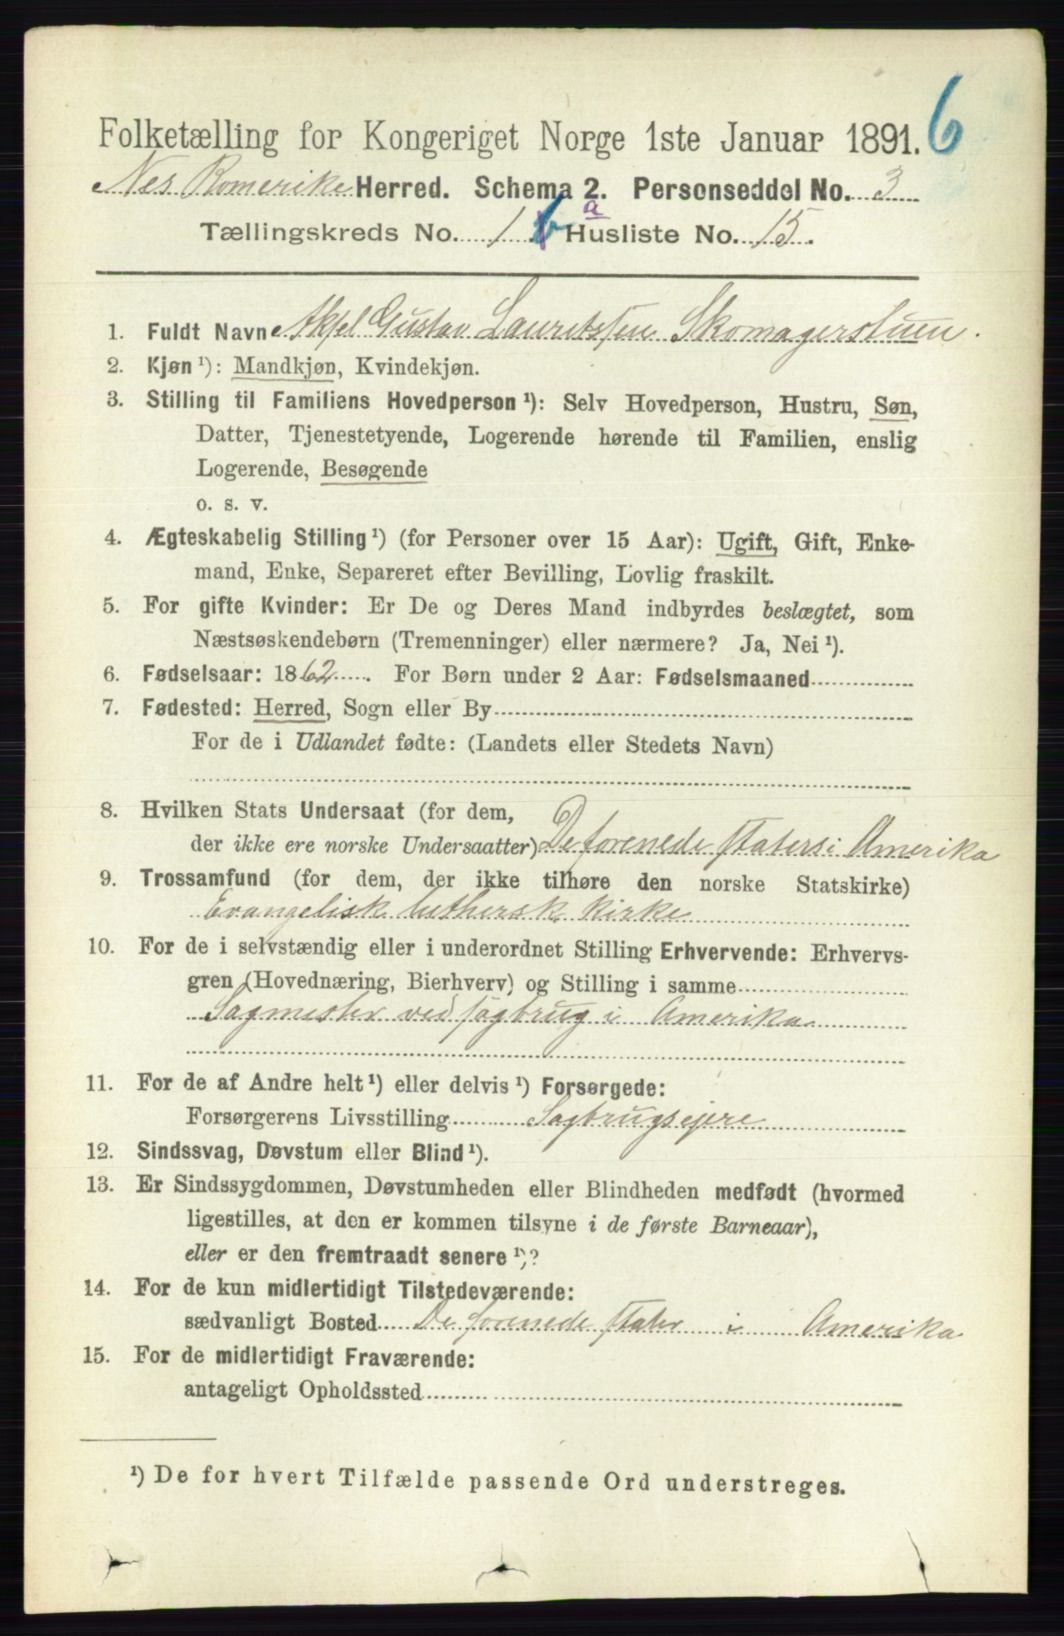 6
Folketælling for Kongeriget Norge 1ste Januar 1891.
Nes Romerike Herred. Schema 2. Personseddel No. 3
Tællingskreds No. 1 6 a Husliste No. 15.
1. Fuldt Navn Aksel Gustav Lauritssen Skomagerstuen.
2. Kjøn ¹): Mandkjøn, Kvindekjøn.
3. Stilling til Familiens Hovedperson ¹): Selv Hovedperson, Hustru, Søn,
Datter, Tjenestetyende, Logerende hørende til Familien, enslig
Logerende, Besøgende
o. s. v.
4. Ægteskabelig Stilling ¹) (for Personer over 15 Aar): Ugift, Gift, Enke-
mand, Enke, Separeret efter Bevilling, Lovlig fraskilt.
5. For gifte Kvinder: Er De og Deres Mand indbyrdes beslægtet, som
Næstsøskendebørn (Tremenninger) eller nærmere? Ja, Nei ¹).
6. Fødselsaar: 1862. For Børn under 2 Aar: Fødselsmaaned
7. Fødested: Herred, Sogn eller By
For de i Udlandet fødte: (Landets eller Stedets Navn)
8. Hvilken Stats Undersaat (for dem,
der ikke ere norske Undersaatter) De forenede staters i Amerika
9. Trossamfund (for dem, der ikke tilhøre den norske Statskirke)
Evangelisk luthersk kirke
10. For de i selvstændig eller i underordnet Stilling Erhvervende: Erhvervs-
gren (Hovednæring, Bierhverv) og Stilling i samme
Sagmester ved sagbrug i Amerika
11. For de af Andre helt ¹) eller delvis ¹) Forsørgede:
Forsørgerens Livsstilling Sagbrugsejere
12. Sindssvag, Døvstum eller Blind ¹).
13. Er Sindssygdommen, Døvstumheden eller Blindheden medfødt (hvormed
ligestilles, at den er kommen tilsyne i de første Barneaar),
eller er den fremtraadt senere ¹)?
14. For de kun midlertidigt Tilstedeværende:
sædvanligt Bosted De forenede stater i Amerika
15. For de midlertidigt Fraværende:
antageligt Opholdssted
¹) De for hvert Tilfælde passende Ord understreges.